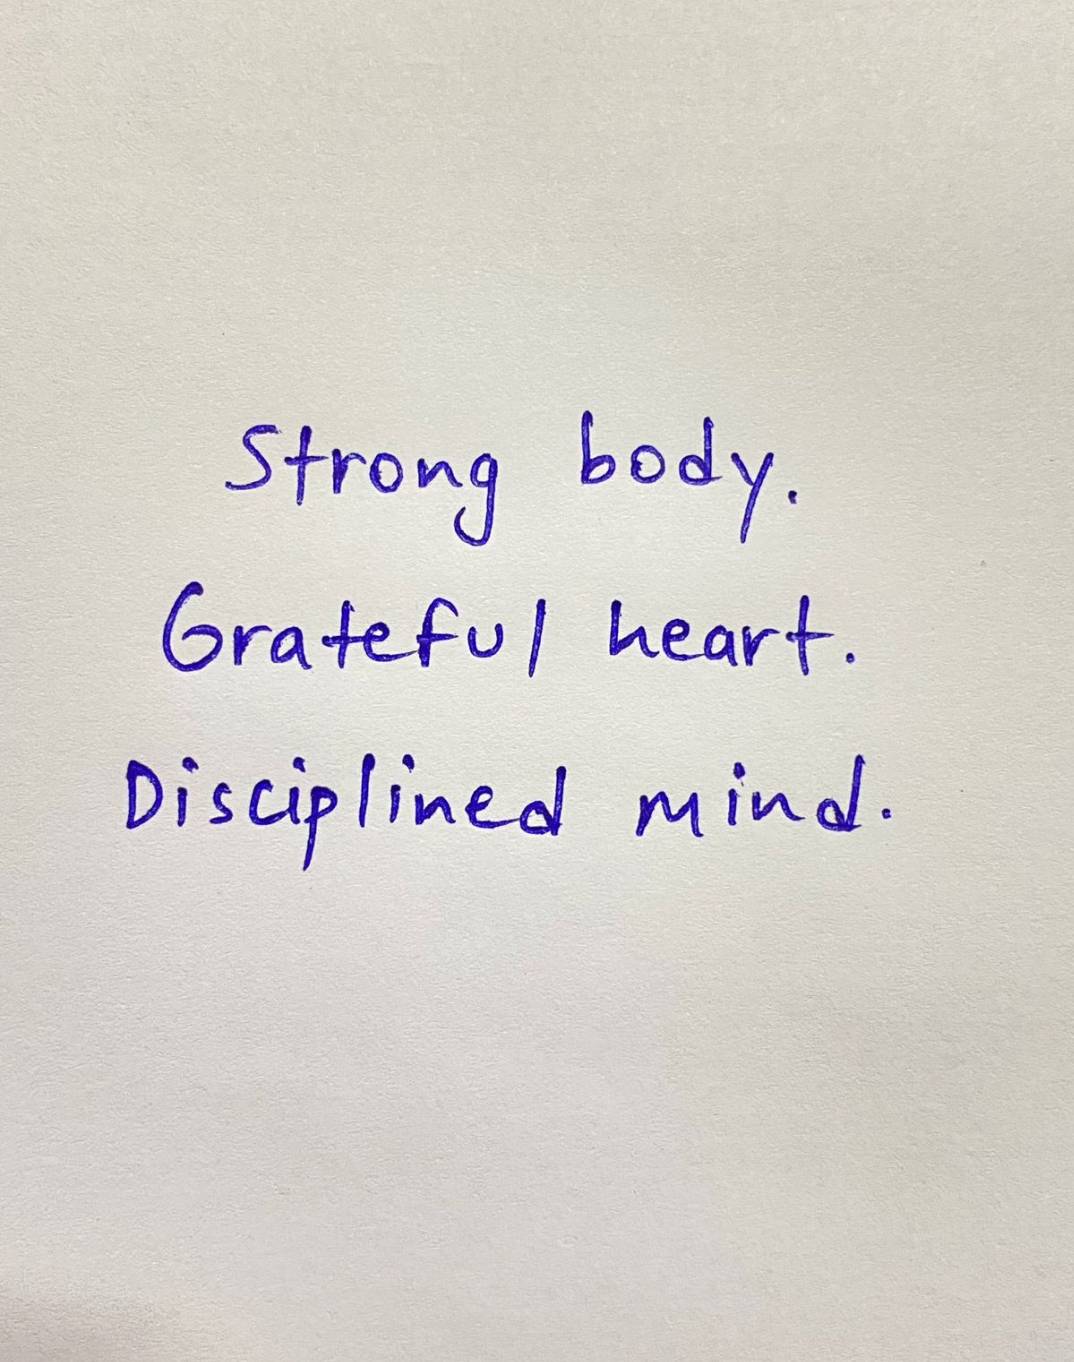 Strong body.
Grateful heart.
Disciplined mind.